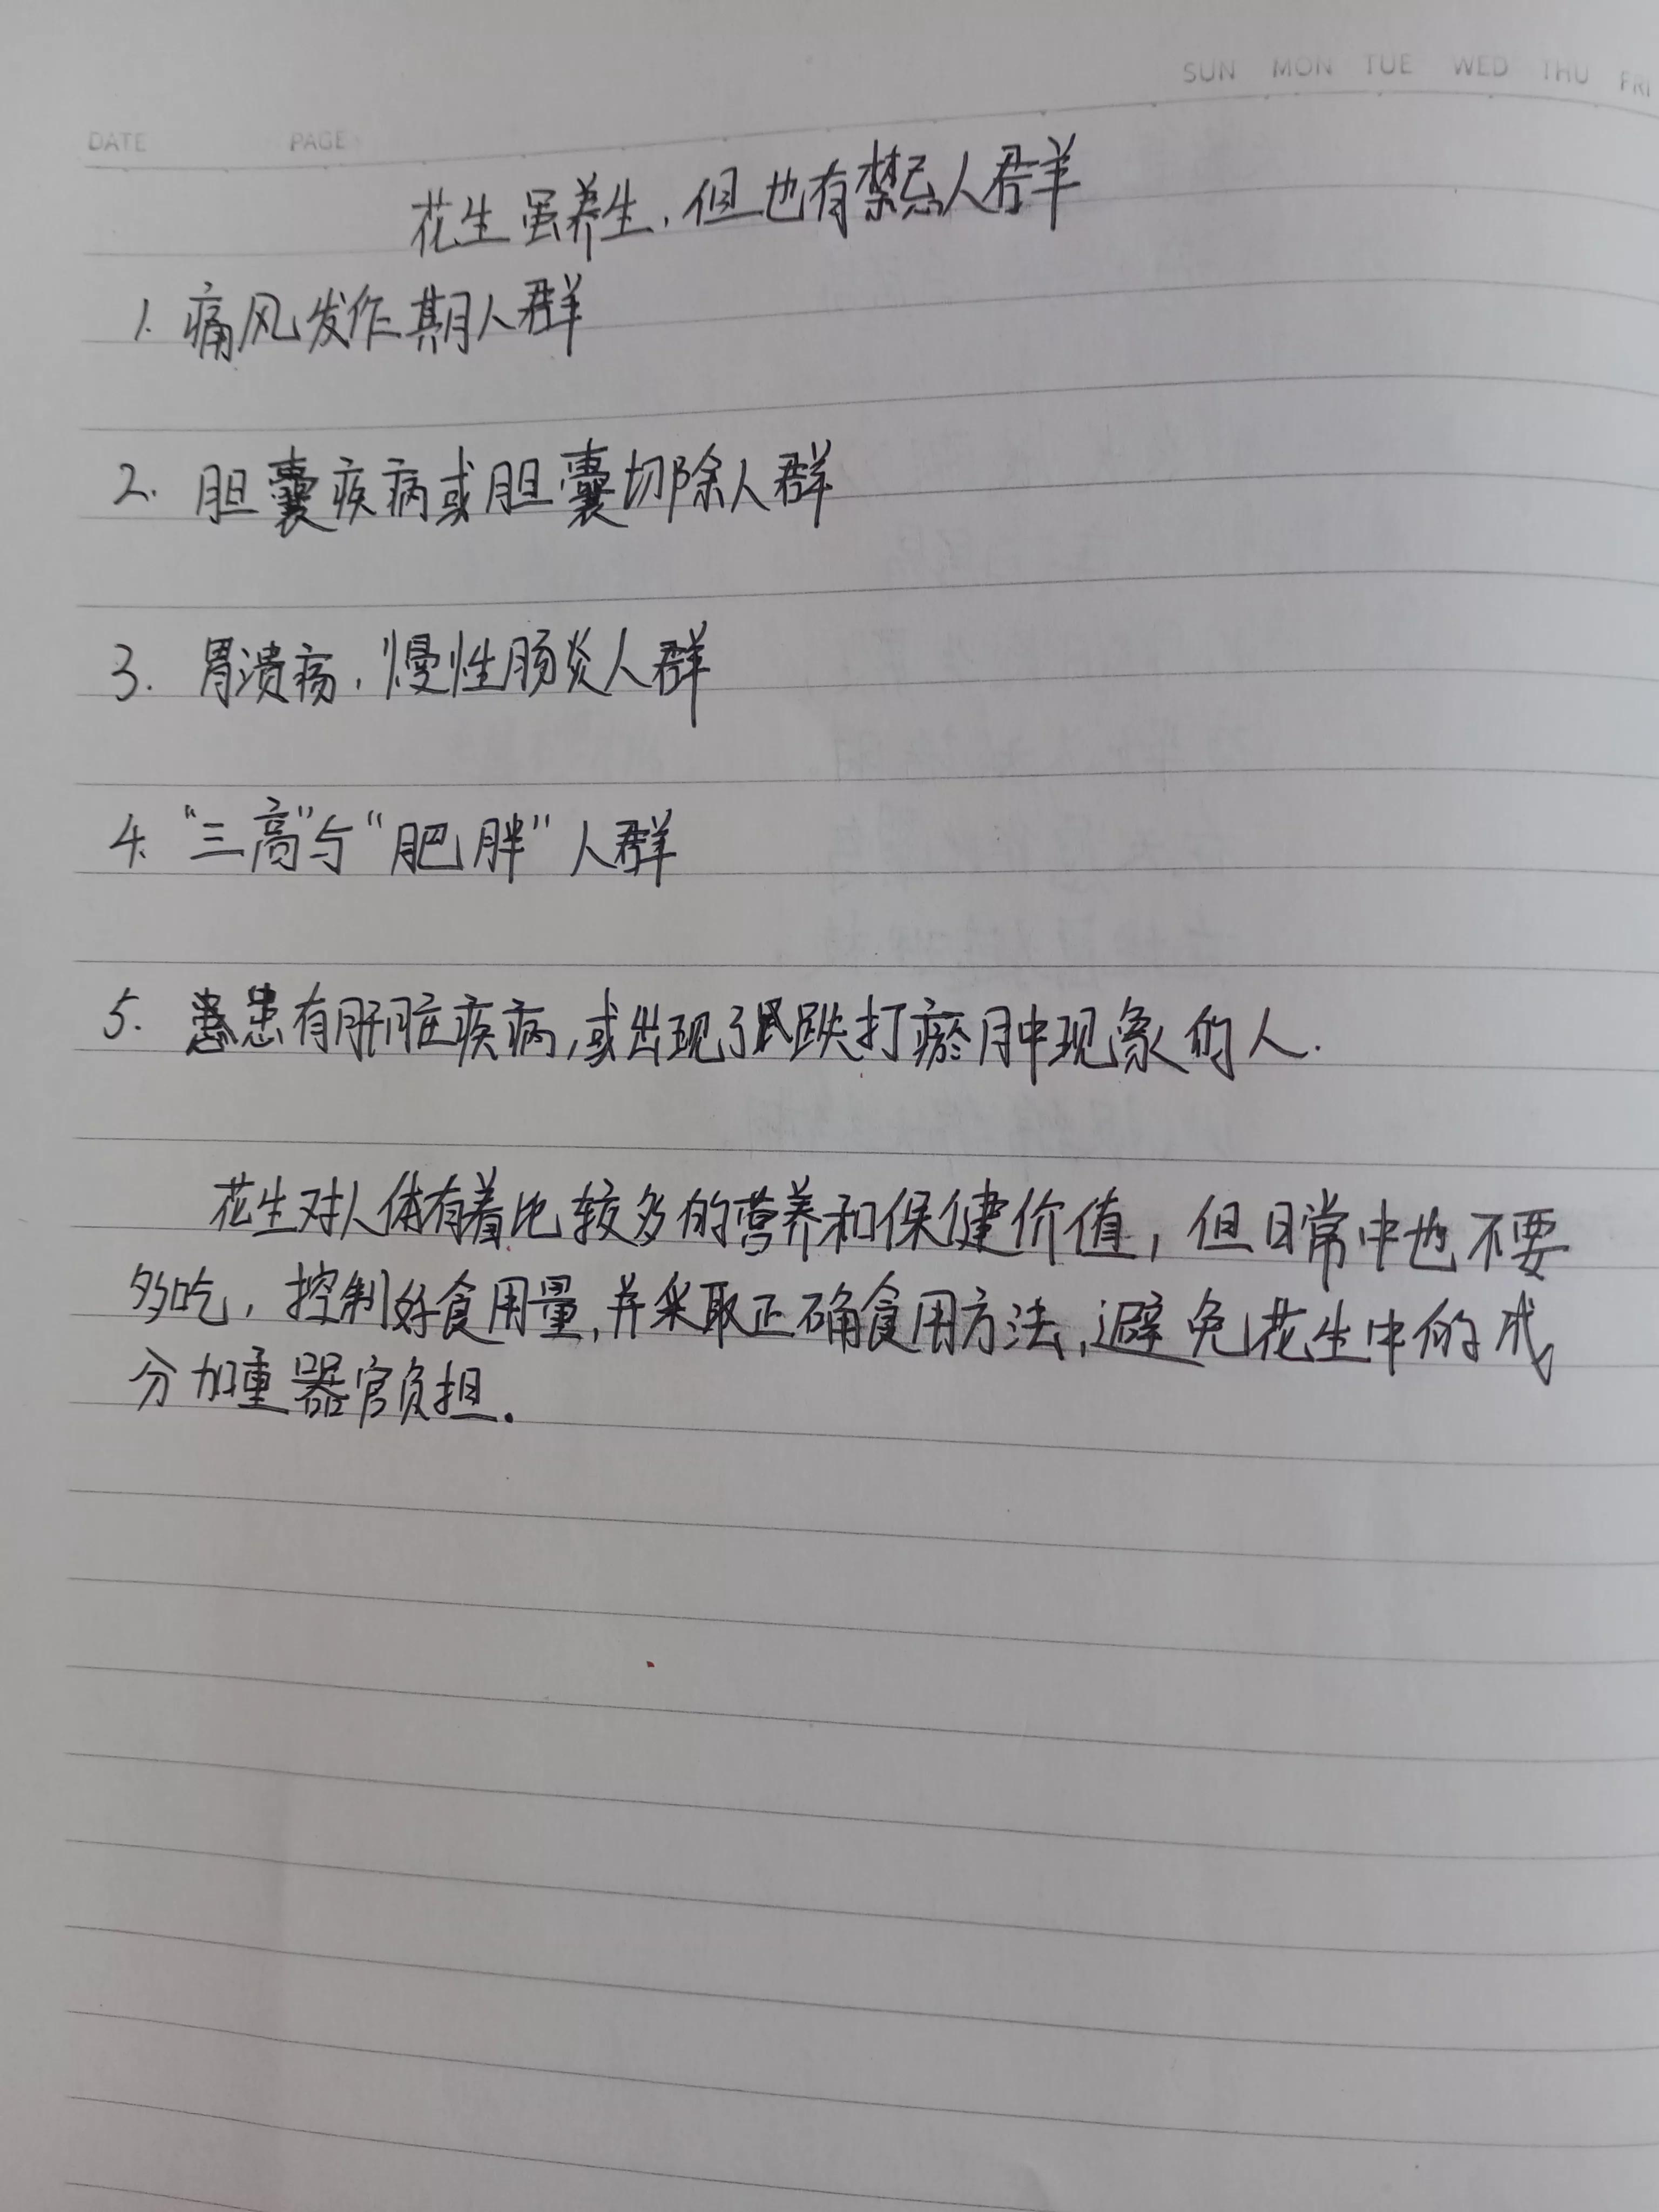 SUN MON TUE WED THU FRI
DATE PAGE
花生虽养生,但也有禁忌人群
1. 痛风发作期人群
2. 胆囊疾病或胆囊切除人群
3. 胃溃疡,慢性肠炎人群
4. “三高”与“肥胖”人群
5. 患有肝脏疾病,或出现了跌打瘀肿现象的人.
花生对人体有着比较多的营养和保健价值,但日常中也不要
多吃,控制好食用量,并采取正确食用方法,避免花生中的成
分加重器官负担.